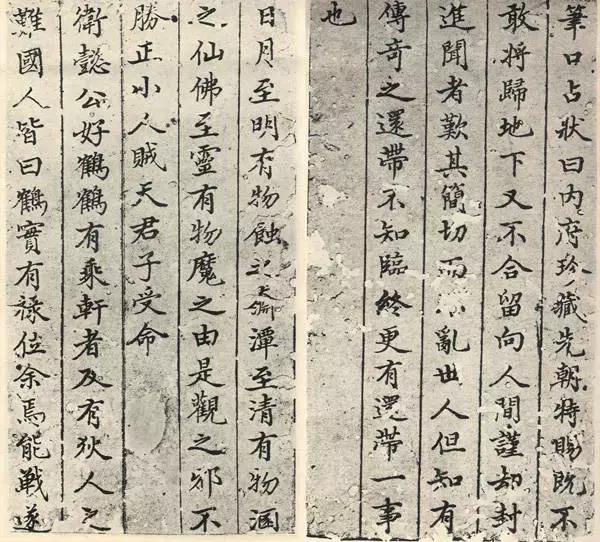 筆口占狀曰内府珍藏先朝特賜既不
敢將歸地下又不合留向人間謹却封
進聞者歎其簡切而不亂世人但知有
傳奇之還帶不知臨終更有還帶一事
也
日月至明有物蝕之潭至清有物溷
之仙佛至靈有物魔之由是觀之邪不
勝正小人賊天君子受命
衛懿公好鶴鶴有乘軒者及有狄人之
難國人皆曰鶴實有祿位余焉能戰遂